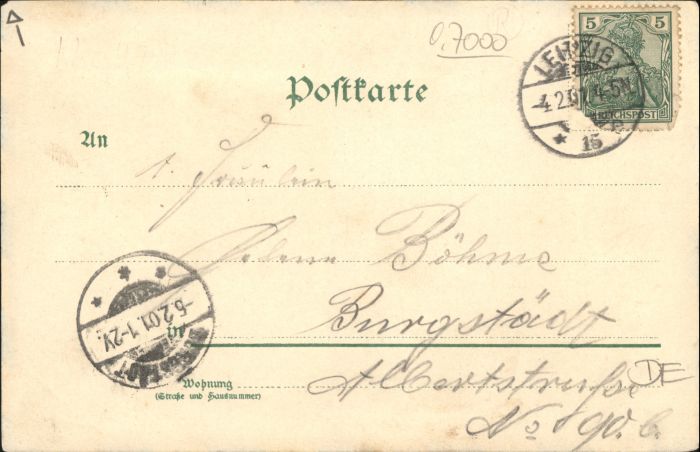 0,7000
5 5
REICHSPOST
LEIPZIG
4.2.01. 4-5N.
* 15
Postkarte
An
Fräulein
Helene Böhme
in
Burgstädt
Wohnung
(Straße und Hausnummer)
Albertstraße
DE
No 90. b.
5.2.01. 1-2V.
BURGSTÄDT